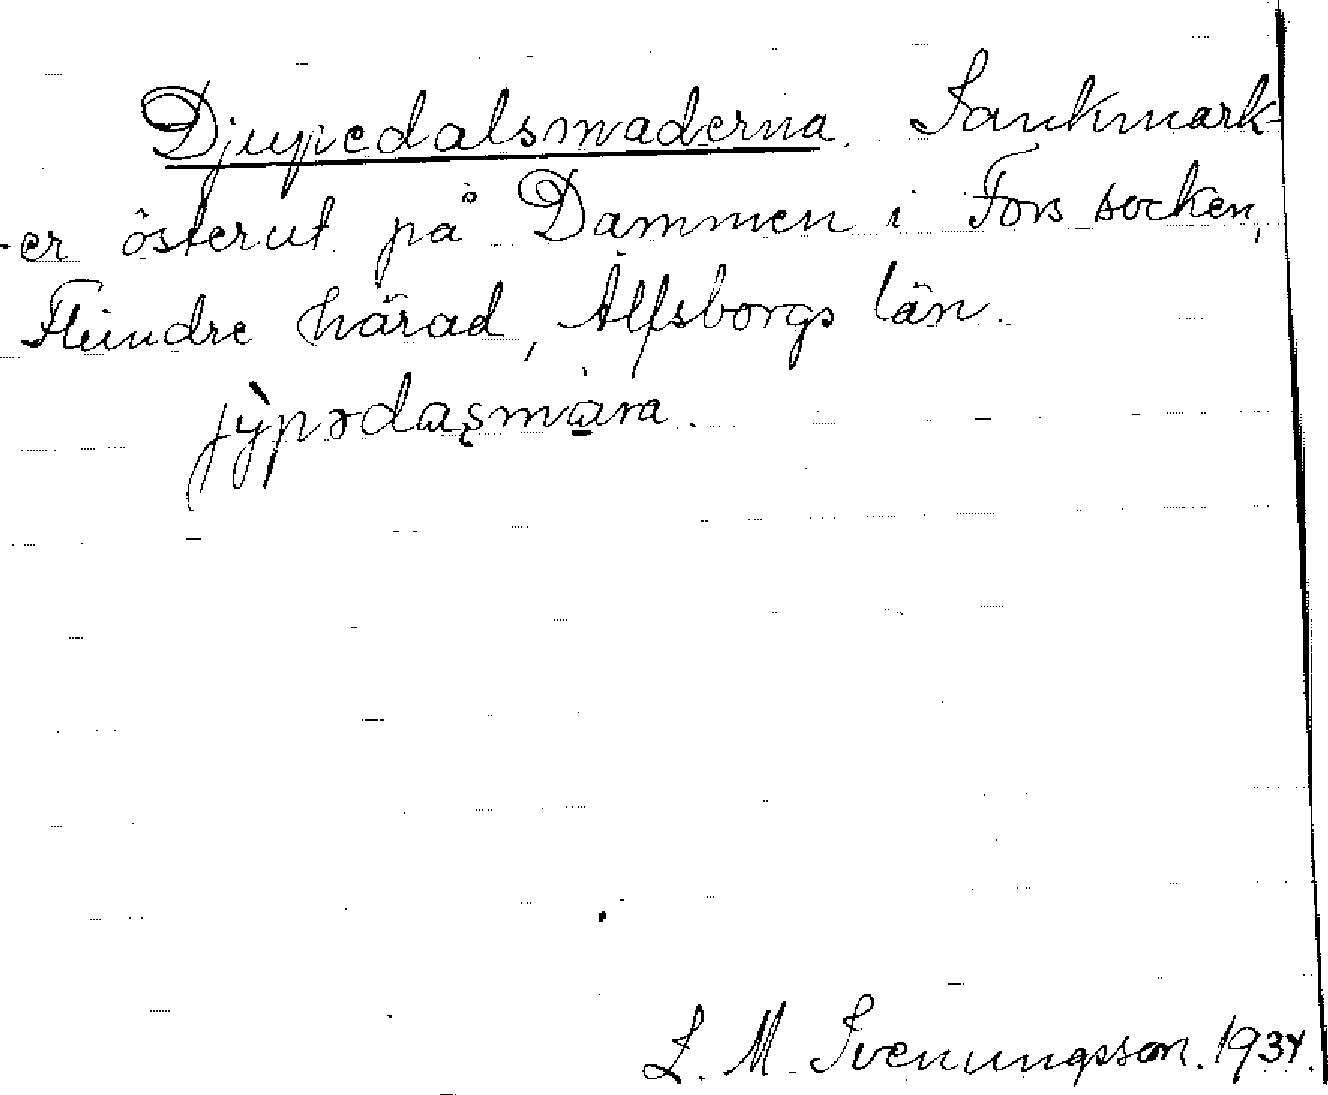 Djupedalsmaderna. Sankmark-
-er österut på Dammen i Fors socken,
Flundre härad, Älfsborgs län.
jỳpədaʂmara.
L. M. Svenungsson. 1934.